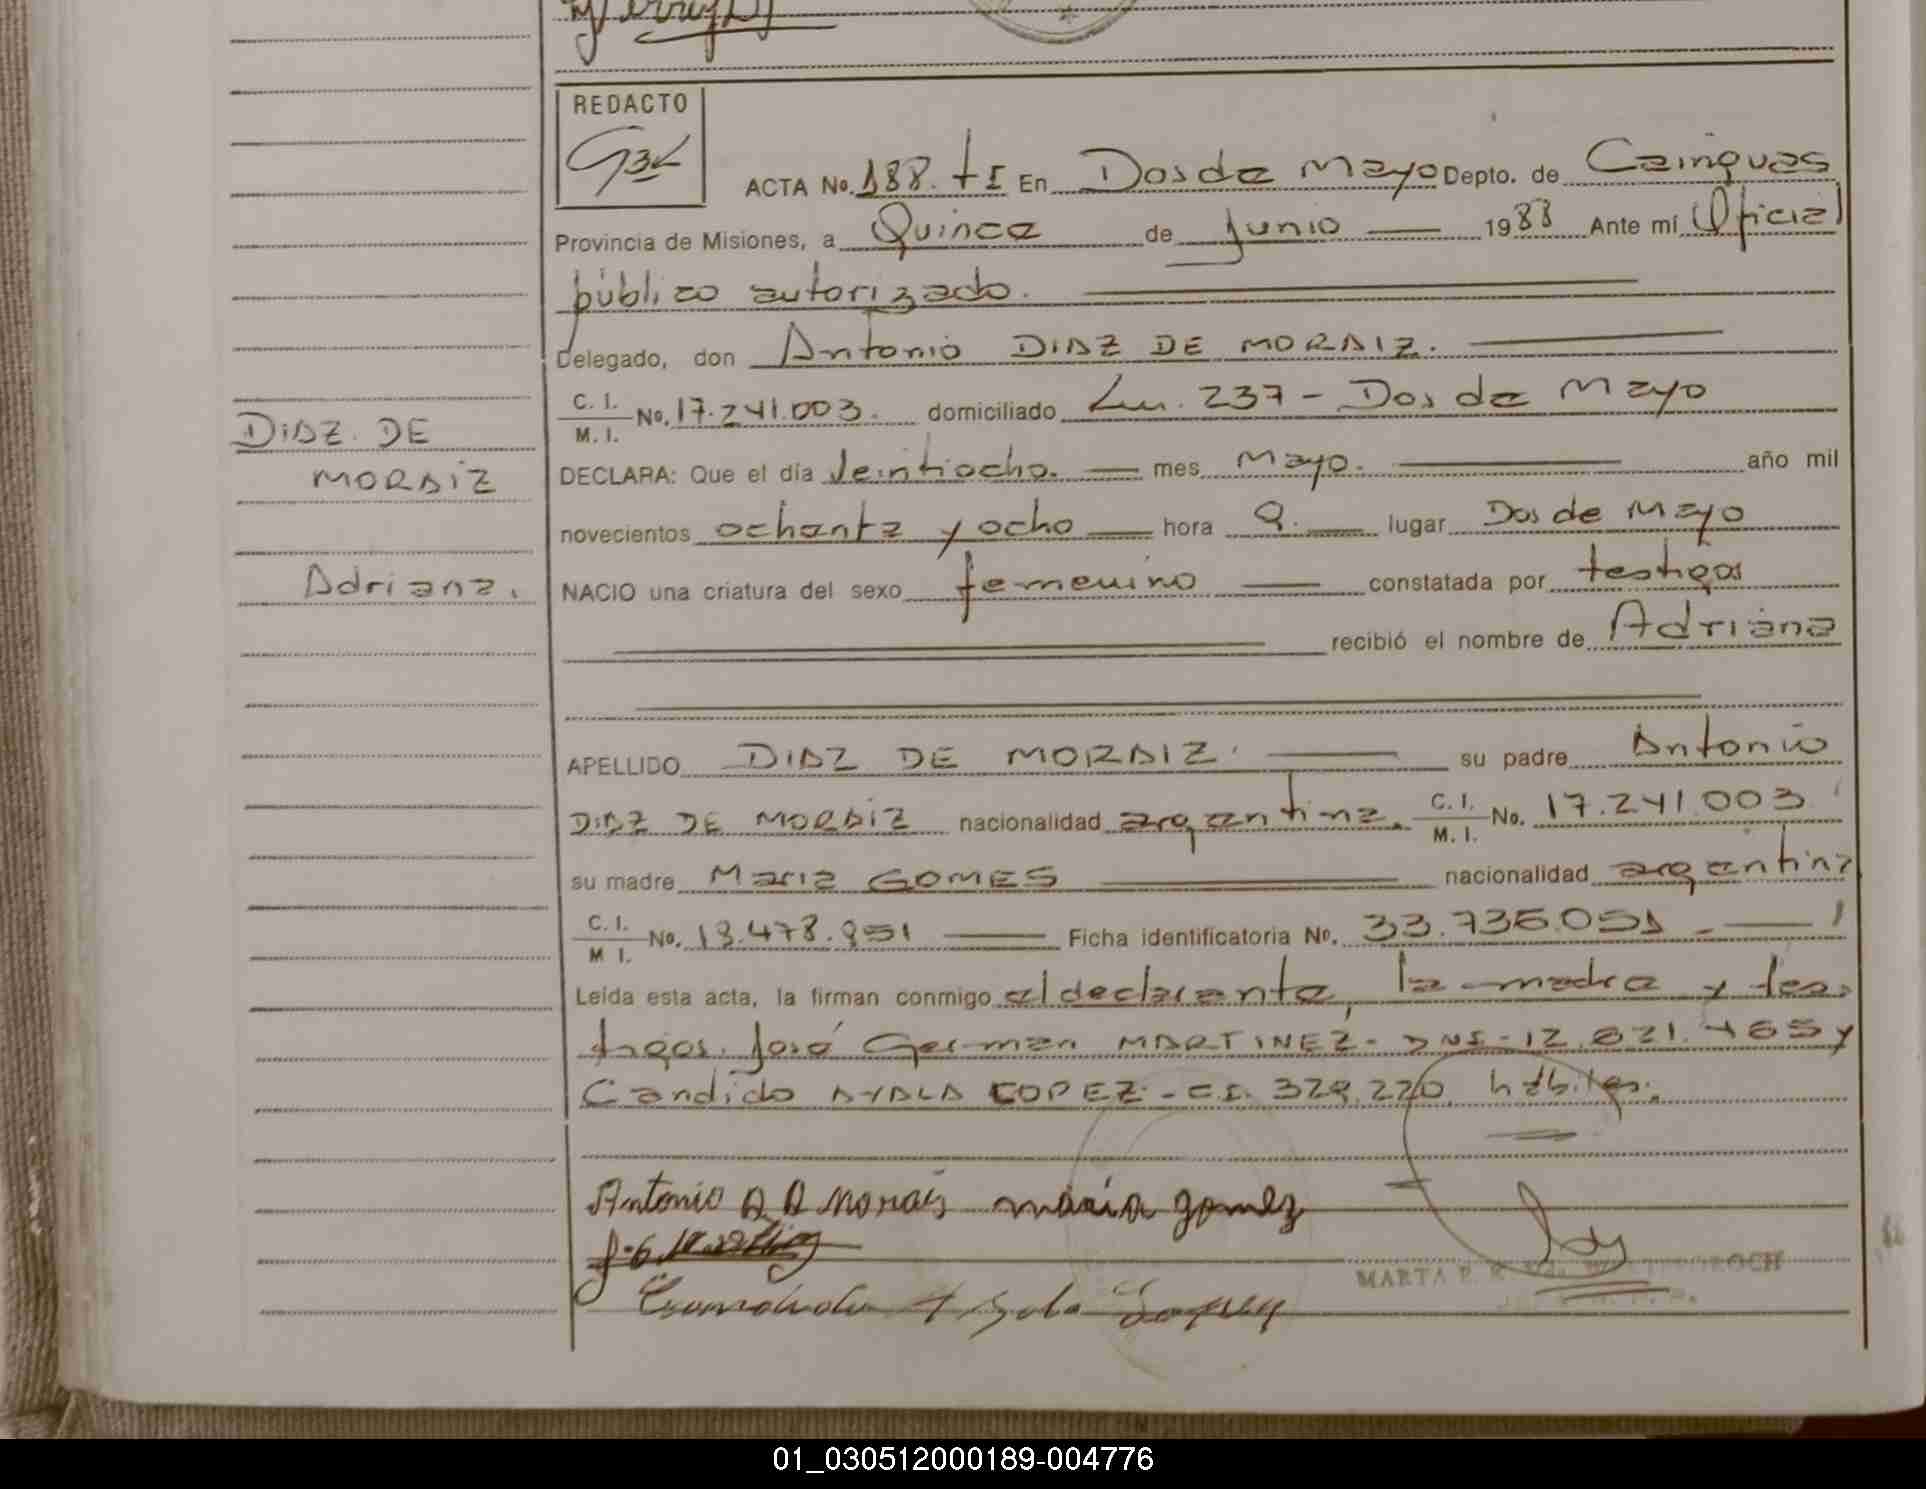 REDACTO
ACTA No. 188. tI En Dos de Mayo Depto. de Cainguas
Provincia de Misiones, a Quince de Junio 1988 Ante mí Oficial
público autorizado.
Delegado, don Antonio DIAZ DE MORAIZ.
C. I. / M. I. No. 17.241.003. domiciliado Lu. 237 - Dos de Mayo
DIAZ DE
MORAIZ
Adriana.
DECLARA: Que el día Veintiocho. mes Mayo. año mil
novecientos ochenta y ocho hora 9. lugar Dos de Mayo
NACIO una criatura del sexo femenino constatada por testigos
recibió el nombre de Adriana
APELLIDO DIAZ DE MORAIZ. su padre Antonio
DIAZ DE MORAIZ nacionalidad argentina. C. I. / M. I. No. 17.241.003
su madre Maria GOMES nacionalidad argentina
C. I. / M I. No. Ficha identificatoria No. 33.736.051
Leída esta acta, la firman conmigo el declarante, la madre y tes-
tigos. José German MARTINEZ - DNI - y
Candido AYALA LOPEZ - C.I. 329.220 hábiles.
Antonio D D Morais maria gomez
Candido Ayala Lopez
MARTA
01_030512000189-004776